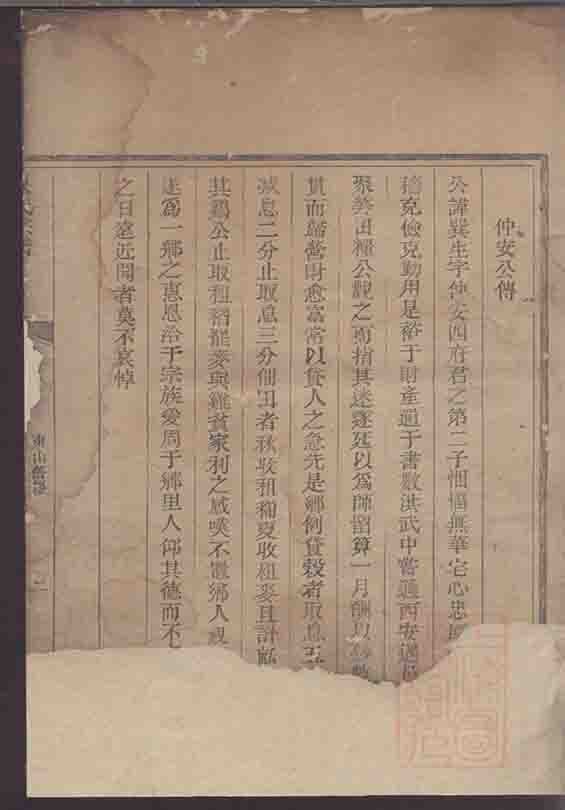 仲安公傳
公諱異生字仲安四府君之第二子悃愊無華宅心忠
稽克儉克勤用是裕于財產通于書數洪武中嘗適西安遇
眾筭田糧公觀之而指其迷遂延以為師留算一月酬以
貫而歸當財愈富常以貸人之急先是鄉例貸穀者取息五
减息二分止取息三分佃田者秋收租稻夏收租麥且計
其鷄公止取租稻罷麥與雞貧家利之感嘆不置鄉人
遂爲一鄉之惠恩洽于宗族愛周于鄉里人仰其德而不
之日遠近聞者莫不哀悼